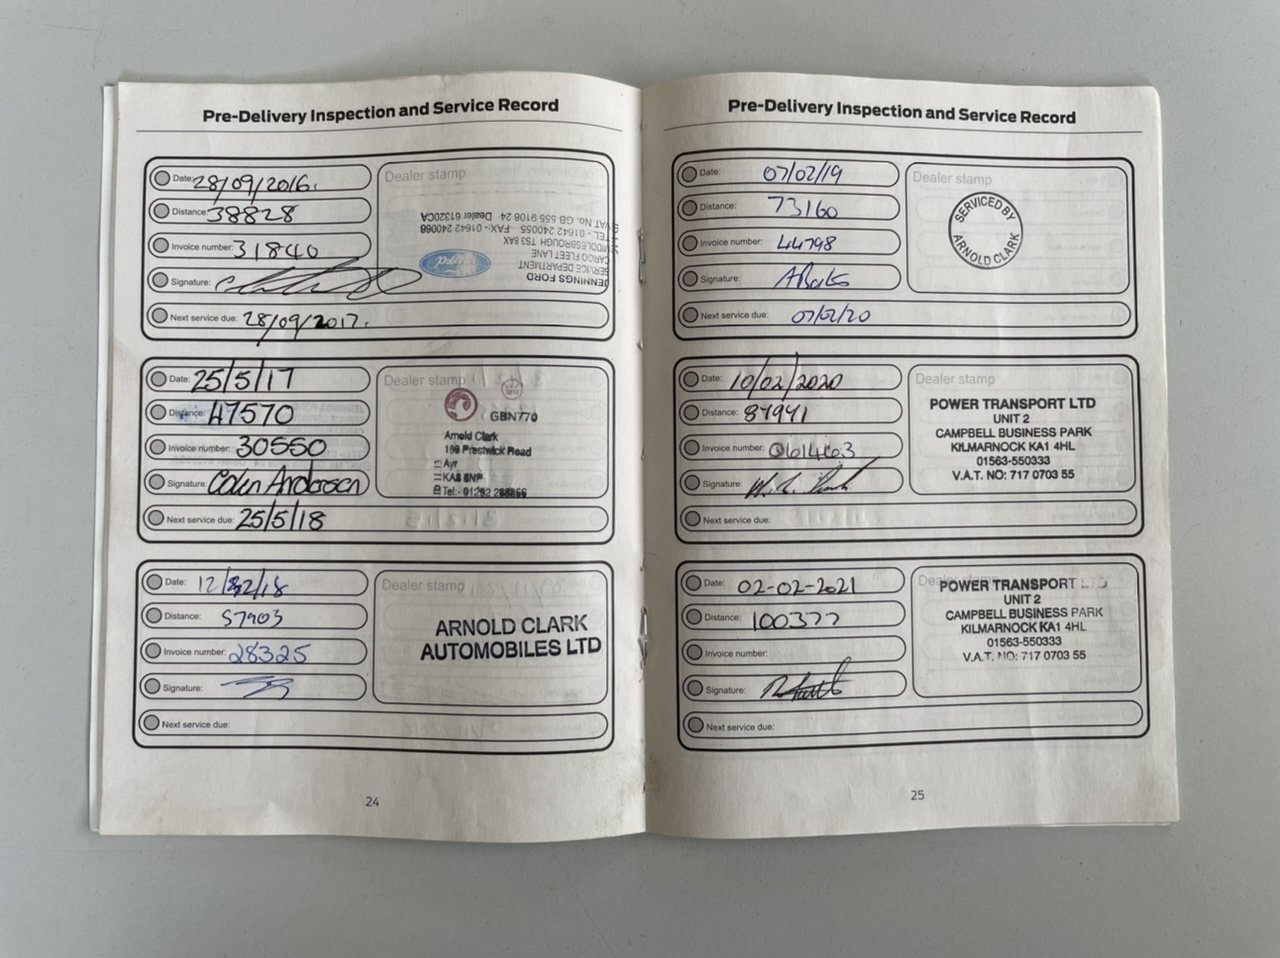 Pre-Delivery Inspection and Service Record
Date: 28/09/2016.
Distance: 38828
Invoice number: 31840
Signature:
Next service due: 28/09/2017.
Dealer stamp
JENNINGS FORD
SERVICE DEPARTMENT
CARGO FLEET LANE
MIDDLESBROUGH TS3 8AX
TEL - 01642 240055 FAX - 01642 240068
VAT No. GB 555 9108 24 Dealer 61320CA
Ford
Date: 25/5/17
Distance: 47570
Invoice number: 30550
Signature: Colin Anderson
Next service due: 25/5/18
Dealer stamp
GBN770
Arnold Clark
199 Prestwick Road
Ayr
KA8 8NP
Tel:- 01292
Date: 12/02/18
Distance: 57903
Invoice number: 28325
Signature:
Next service due:
Dealer stamp
ARNOLD CLARK
AUTOMOBILES LTD
24
Pre-Delivery Inspection and Service Record
Date: 07/02/19
Distance: 73160
Invoice number: 44798
Signature:
Next service due: 07/02/20
Dealer stamp
SERVICED BY
ARNOLD CLARK
Date: 10/02/2020
Distance: 87971
Invoice number: 061463
Signature:
Next service due:
Dealer stamp
POWER TRANSPORT LTD
UNIT 2
CAMPBELL BUSINESS PARK
KILMARNOCK KA1 4HL
01563-550333
V.A.T. NO: 717 0703 55
Date: 02-02-2021
Distance: 100377
Invoice number:
Signature:
Next service due:
Dealer stamp
POWER TRANSPORT LTD
UNIT 2
CAMPBELL BUSINESS PARK
KILMARNOCK KA1 4HL
01563-550333
V.A.T. NO: 717 0703 55
25